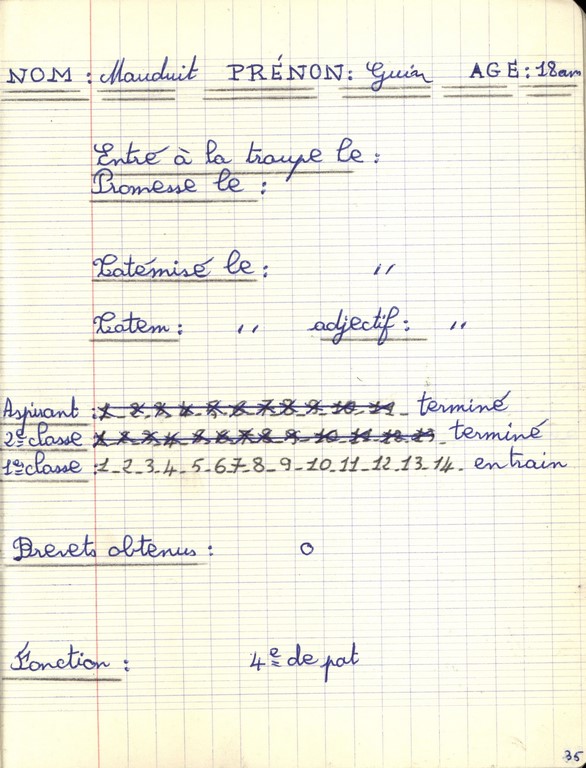 NOM : Mauduit PRÉNON: Guin AGE: 18 ans
Entré à la troupe le :
Promesse le :
Totémisé le : "
Totem : " adjectif : "
Aspirant : 1 2 3 4 5 6 7 8 9 10 11 terminé
2e classe 1 2 3 4 5 6 7 8 9 10 11 12 13 terminé
1e classe : 1_2_3_4_5_6_7_8_9_10_11_12_13_14_ en train
Brevets obtenus : 0
Fonction : 4e de pat
35